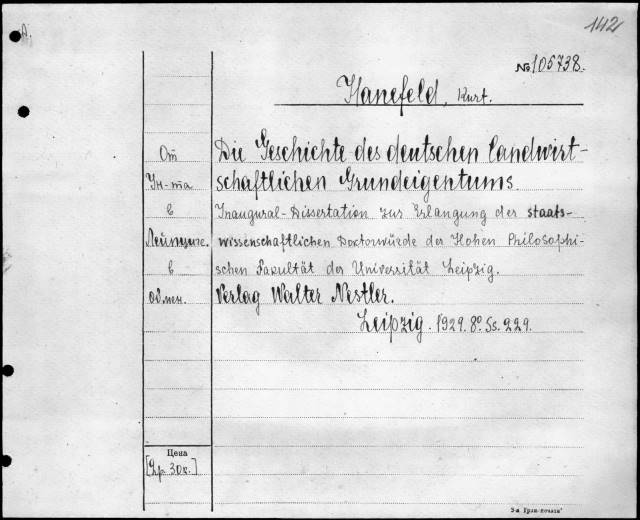 142
№ 105738.
Hanefeld, Kurt.
От Die Geschichte des deutschen landwirt-
Ун-та schaftlichen Grundeigentums.
в Inaugural-Dissertation zur Erlangung der staats-
Лейпциге. wissenschaftlichen Doktorwürde der Hohen Philosophi-
в schen Fakultät der Universität Leipzig.
обмен. Verlag Walter Nestler.
Leipzig. 1929. 8º. Ss. 229.
Цена
[2р. 30к.]